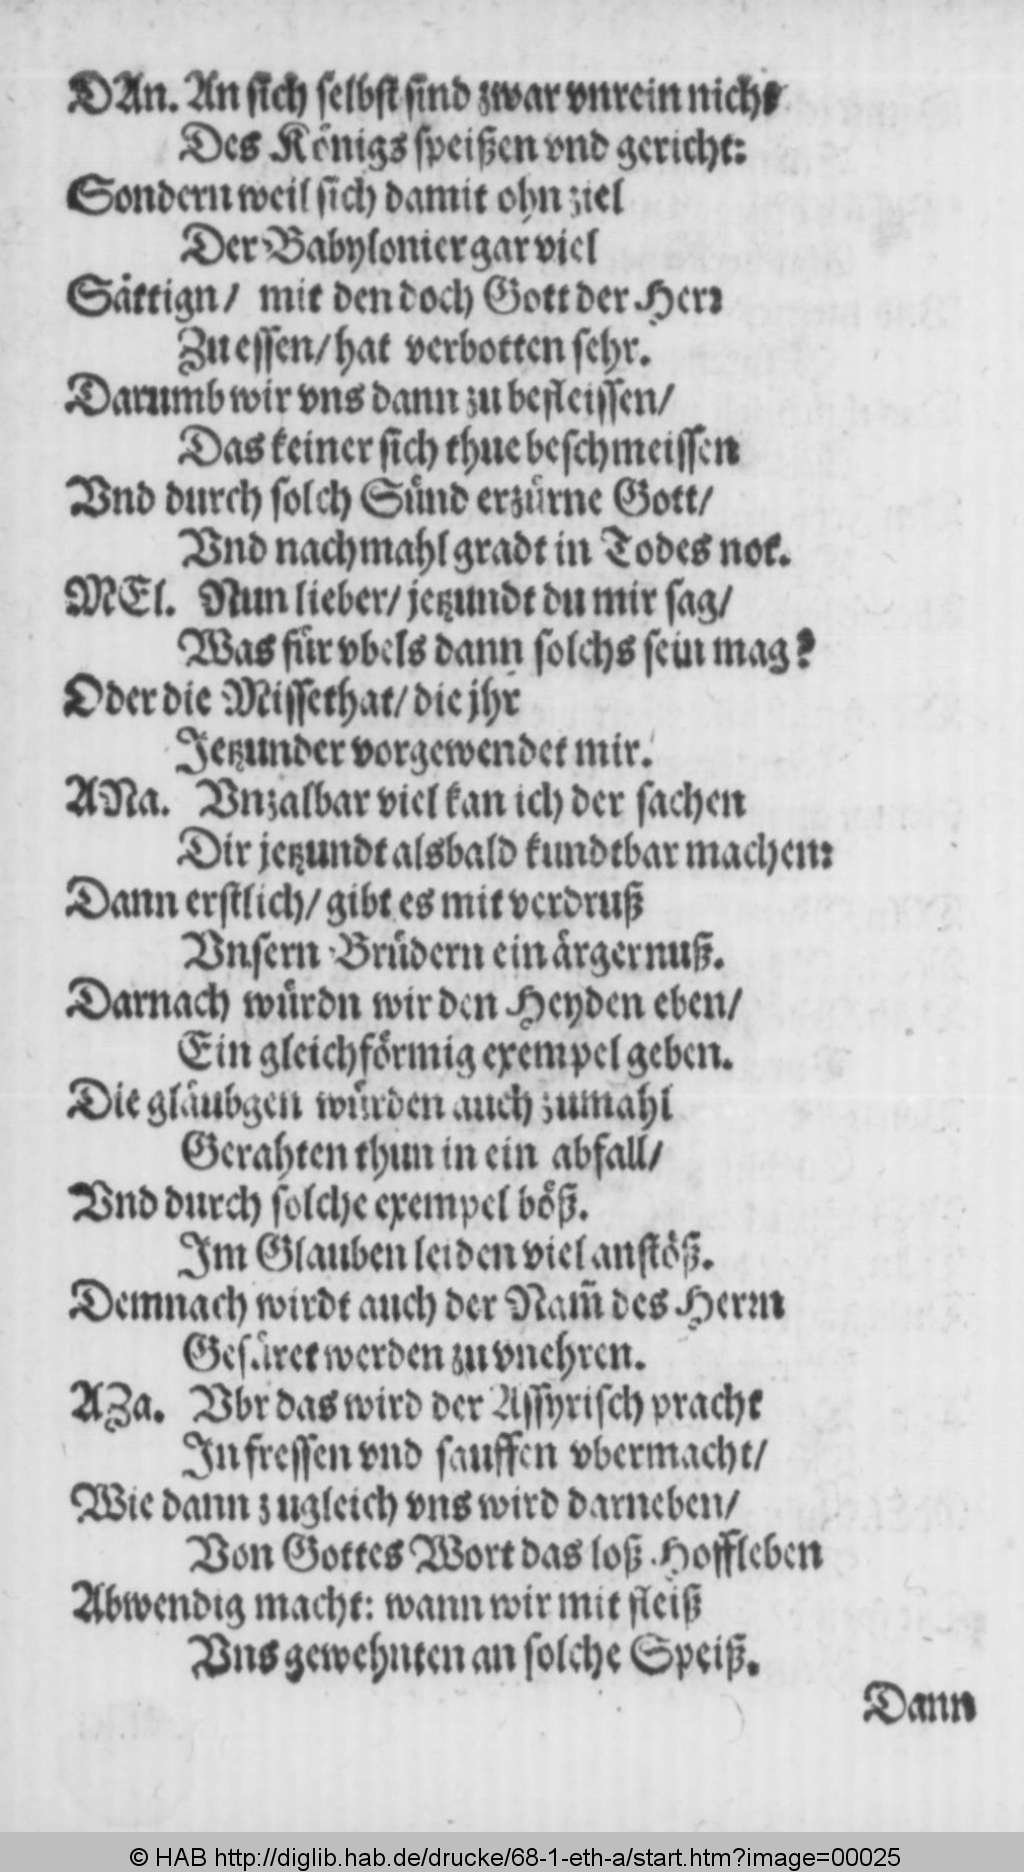 DAn. An sich selbst sind zwar vnrein nicht
Des Königs speißen vnd gericht:
Sondern weil sich damit ohn ziel
Der Babylonier gar viel
Sättign/ mit den doch Gott der Herr
Zu essen/ hat verbotten sehr.
Darumb wir vns dann zu befleissen/
Das keiner sich thue beschmeissen
Vnd durch solch Sünd erzürne Gott/
Vnd nachmahl gradt in Todes not.
MEl. Nun lieber/ jetzundt du mir sag/
Was für vbels dann solchs sein mag?
Oder die Missethat/ die jhr
Jetzunder vorgewendet mir.
ANa. Vnzalbar viel kan ich der sachen
Dir jetzundt alsbald kundtbar machen:
Dann erstlich/ gibt es mit verdruß
Vnsern Brüdern ein ärgernuß.
Darnach würdn wir den Heyden eben/
Ein gleichförmig exempel geben.
Die gläubgen würden auch zumahl
Gerahten thun in ein abfall/
Vnd durch solche exempel böß.
Im Glauben leiden viel anstöß.
Demnach wirdt auch der Nam̃ des Herrn
Gefüret werden zu vnehren.
AZa. Vbr das wird der Assyrisch pracht
In fressen vnd sauffen vbermacht/
Wie dann zugleich vns wird darneben/
Von Gottes Wort das loß Hoffleben
Abwendig macht: wann wir mit fleiß
Vns gewehnten an solche Speiß.
Dann
© HAB http://diglib.hab.de/drucke/68-1-eth-a/start.htm?image=00025